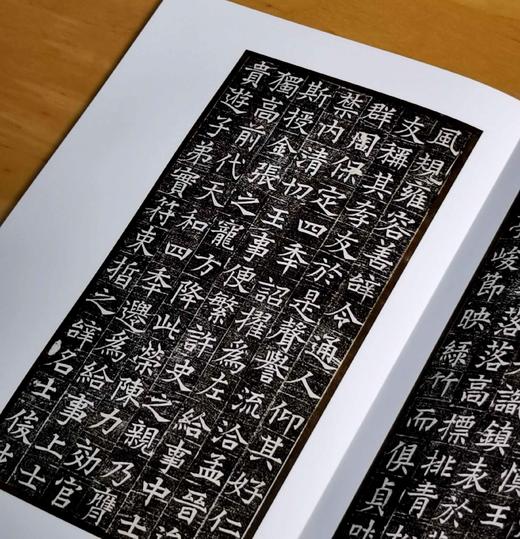 風規雍容善辭令通人仰其好仁
友稱其孝友於是聲譽流洽孟晉
群保定四年詔擢為左給事中士
禁內清切王事便繁許史之親乃膺
斯授金張之寵方降此榮陳力効官
獨高前代天和四年遷為給事上士
賁遊子弟實符束晳之辭名士俊
慎王
識鎮表於
落落高標排青
峻節映綠竹而俱貞